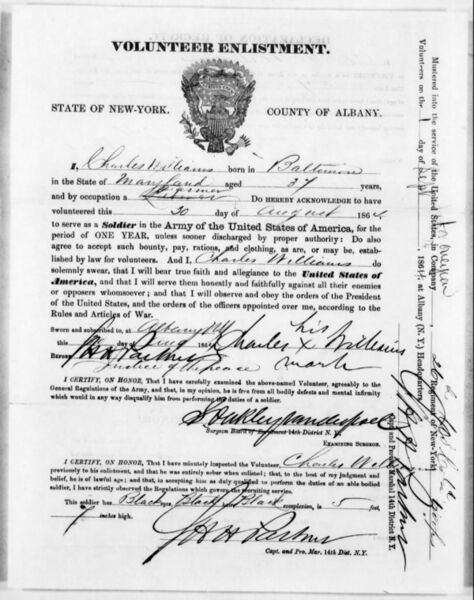 VOLUNTEER ENLISTMENT.
STATE OF NEW-YORK. COUNTY OF ALBANY.
I, Charles Williams born in Baltimore
in the State of Maryland aged 37 years,
Farmer
and by occupation a Do HEREBY ACKNOWLEDGE to have
volunteered this 30 day of August 1864,
to serve as a Soldier in the Army of the United States of America, for the
period of ONE YEAR, unless sooner discharged by proper authority: Do also
agree to accept such bounty, pay, rations, and clothing, as are, or may be, estab-
lished by law for volunteers. And I, Charles Williams do
solemnly swear, that I will bear true faith and allegiance to the United States of
America, and that I will serve them honestly and faithfully against all their enemies
or opposers whomsoever; and that I will observe and obey the orders of the President
of the United States, and the orders of the officers appointed over me, according to the
Rules and Articles of War.
Sworn and subscribed to, at Albany NY
this day of Aug 1864
BEFORE
Justice of the peace
Charles his x mark Williams
I CERTIFY, ON HONOR, That I have carefully examined the above-named Volunteer, agreeably to the
General Regulations of the Army, and that, in my opinion, he is free from all bodily defects and mental infirmity
which would in any way disqualify him from performing the duties of a soldier.
Surgeon Board of Enrolment 14th District N. Y.
EXAMINING SURGEON.
I CERTIFY, ON HONOR, That I have minutely inspected the Volunteer, Charles
previously to his enlistment, and that he was entirely sober when enlisted; that, to the best of my judgment and
belief, he is of lawful age; and that, in accepting him as duly qualified to perform the duties of an able bodied
soldier, I have strictly observed the Regulations which govern the recruiting service.
This soldier has Black eyes, Black hair, Black complexion, is feet
inches high.
Capt. and Pro. Mar. 14th Dist. N.Y.
Mustered into the service of the United States, in Company Regiment of New-York
Volunteers on the day of 1864, at Albany (N. Y.) Headquarters,
Captain and Provost Marshal 14th District N.Y.